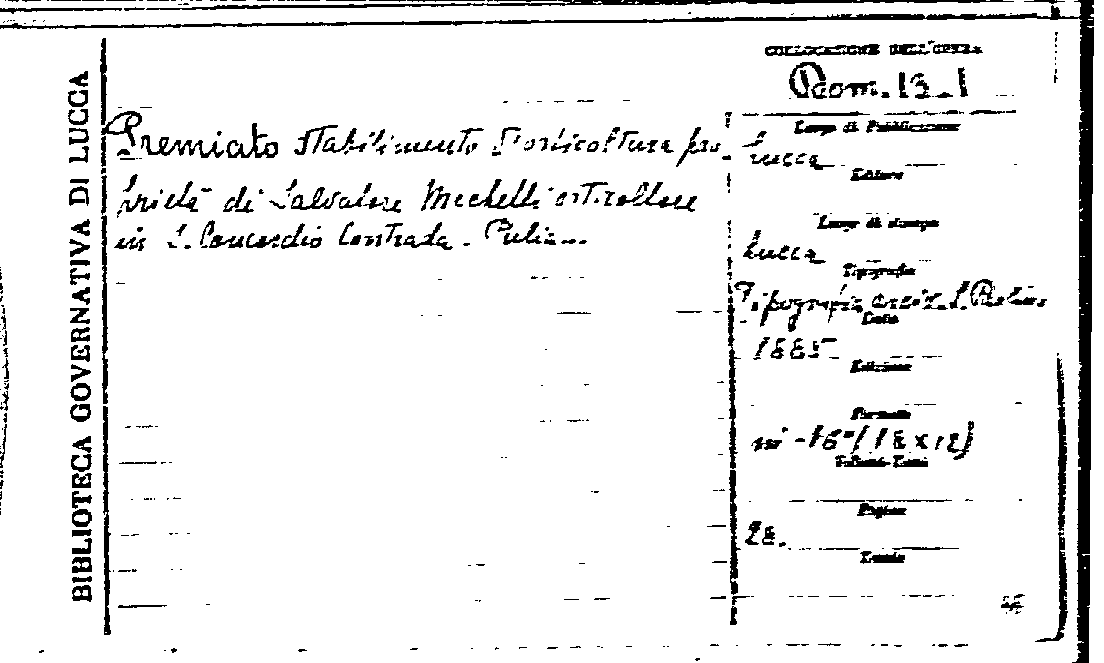 BIBLIOTECA GOVERNATIVA DI LUCCA
COLLOCAZIONE DELL'OPERA
Premiato Stabilimento d'orticoltura pro-
prietà di Salvatore Mechelli orticoltore
in S. Concordio Contrada.
Luogo di Pubblicazione
Lucca
Editore
Luogo di stampa
Lucca
Tipografia
Tipografia arciv. S. Paolino
Data
1885
Edizione
Formato
in-16°(18 x 12)
Volumi-Tomi
Pagine
28.
Tavole